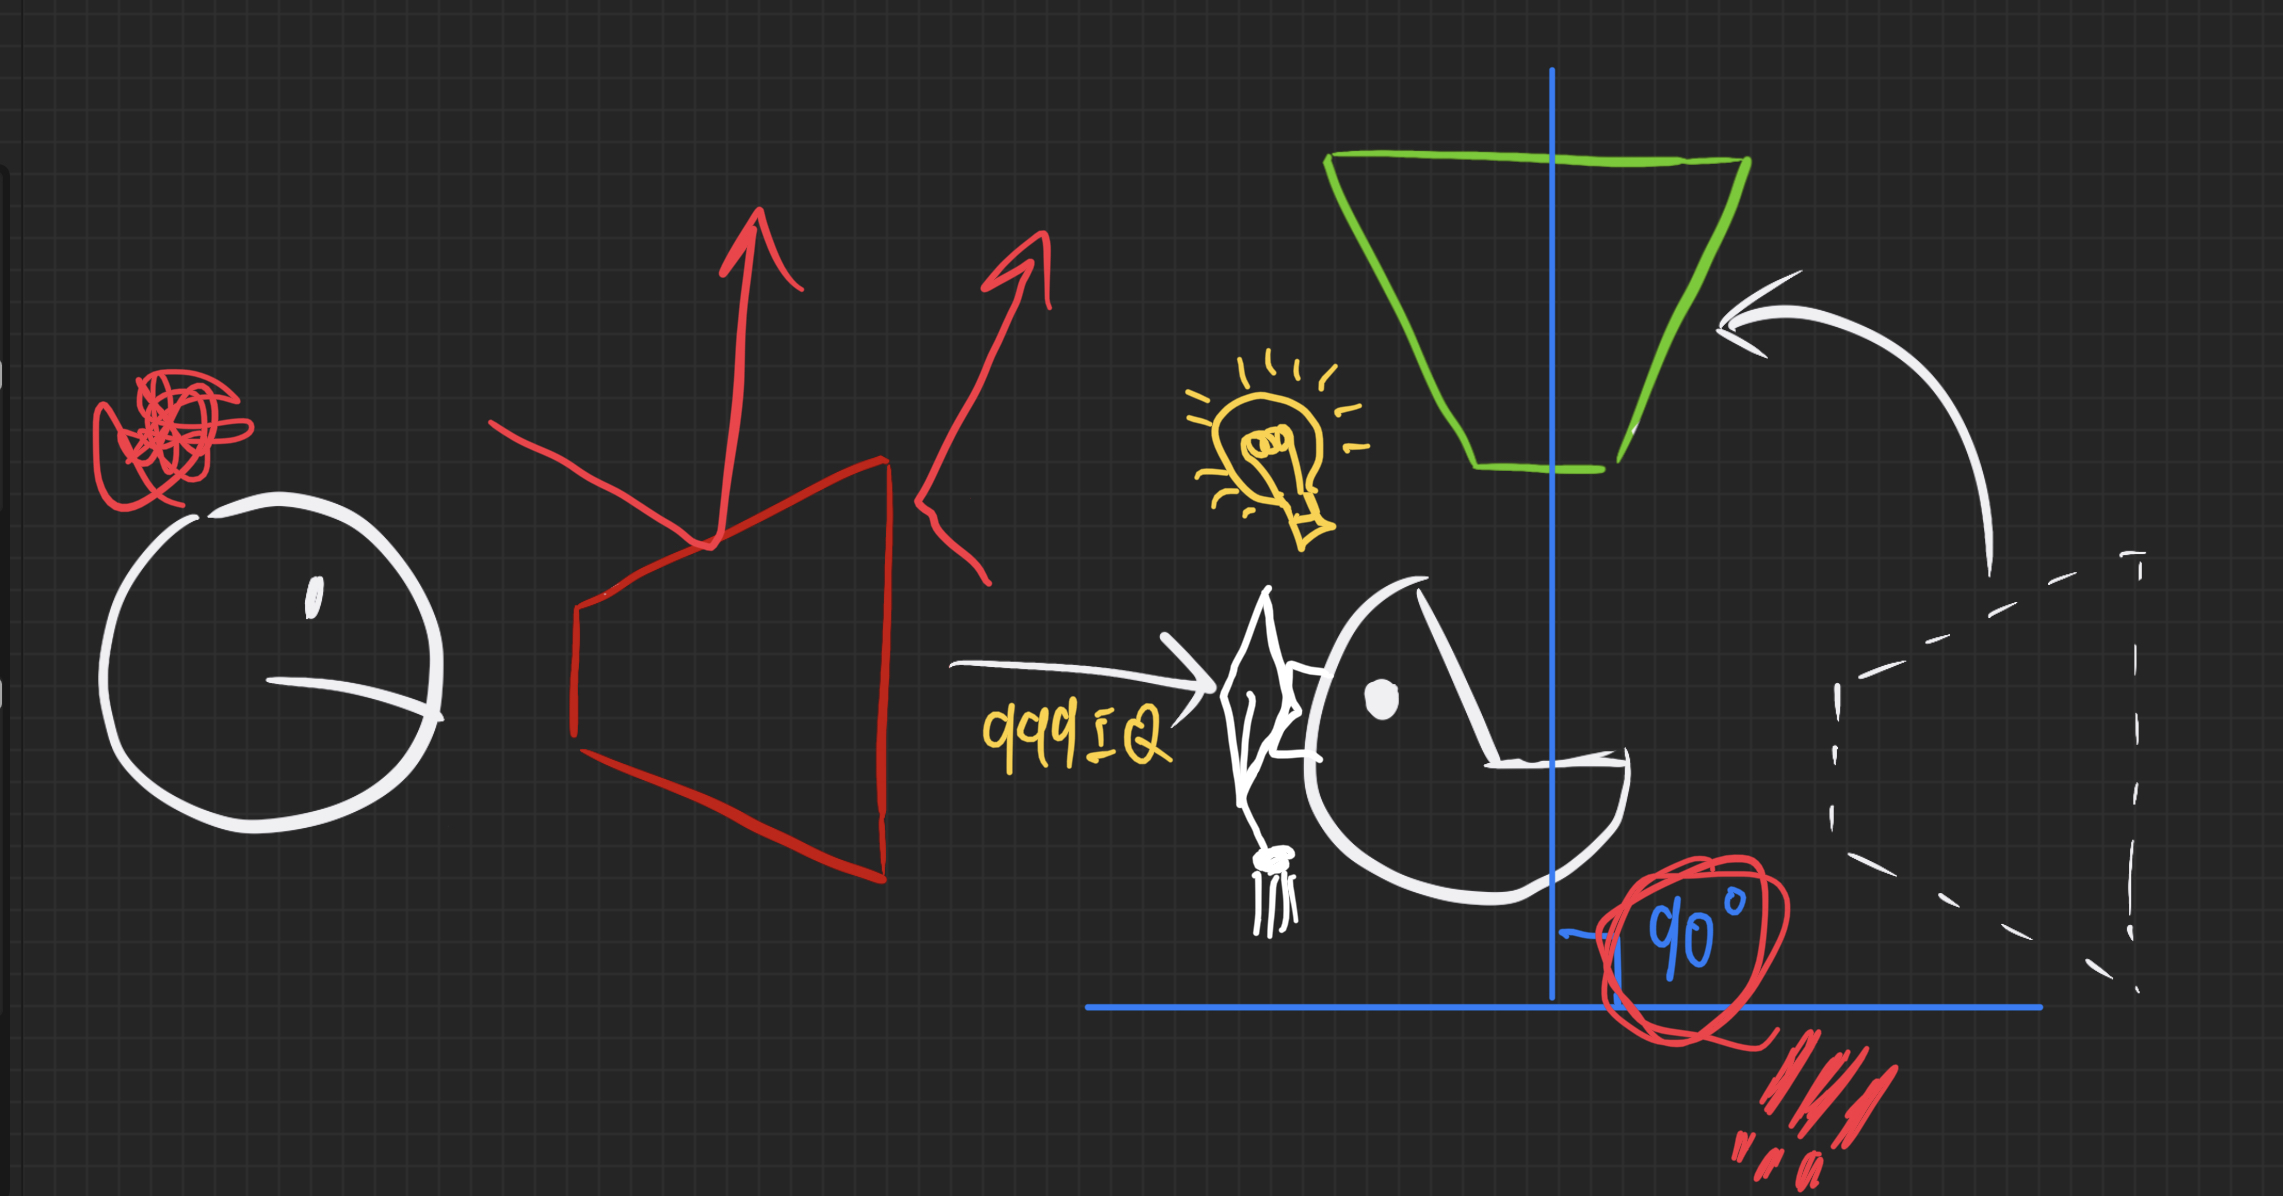 999IQ
90°